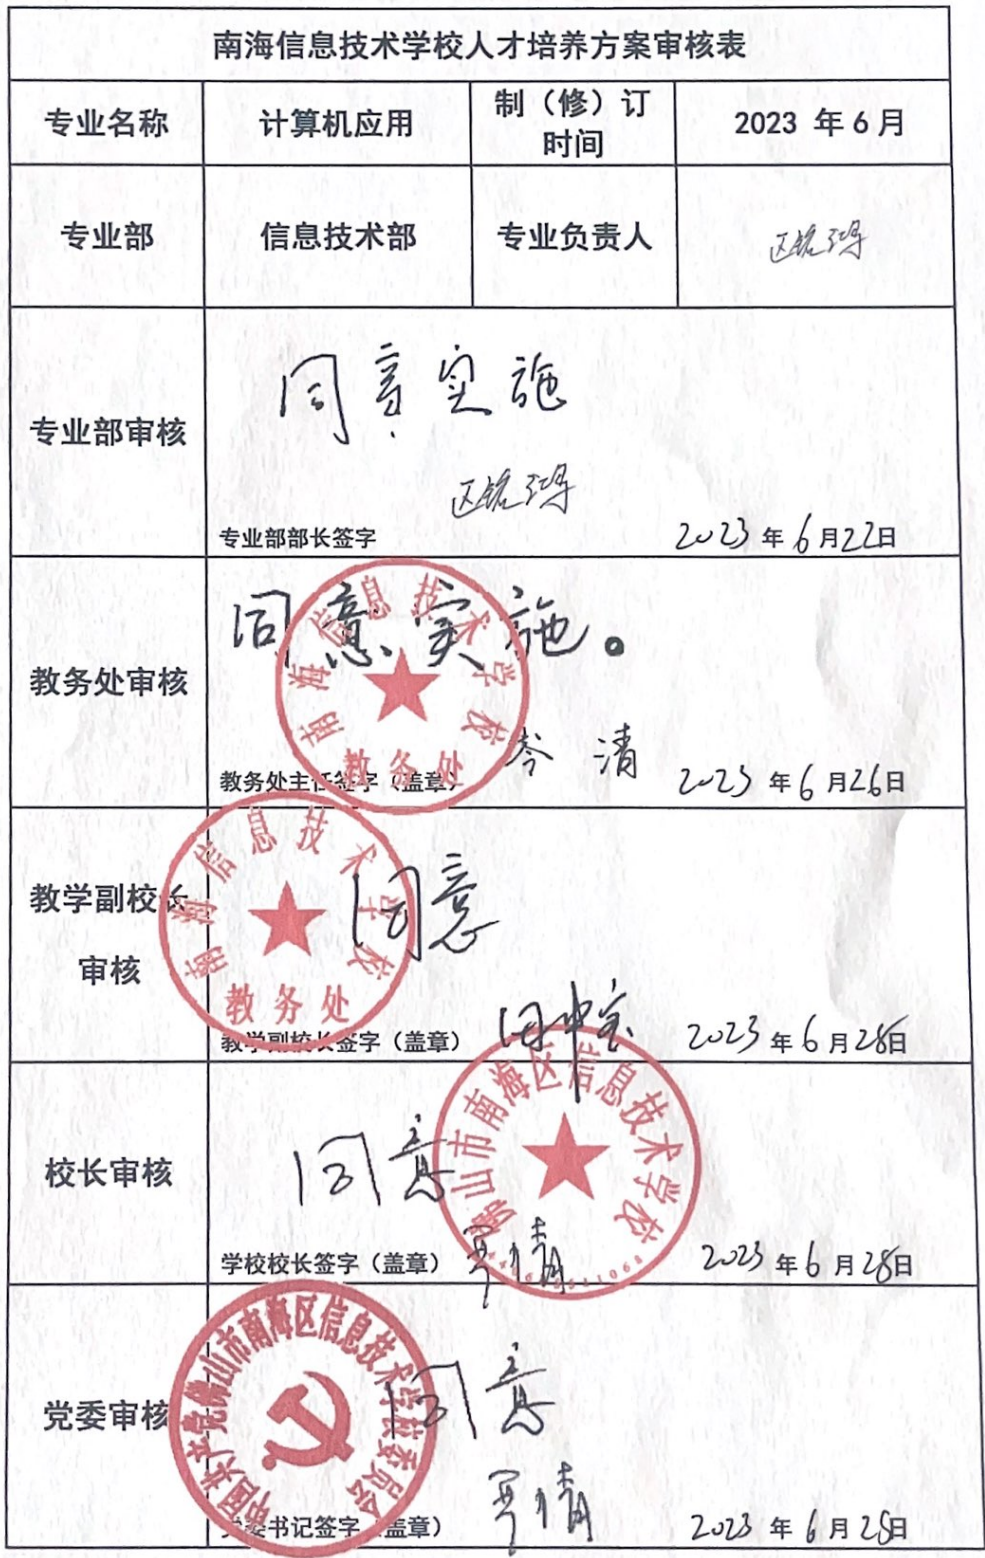 南海信息技术学校人才培养方案审核表
专业名称 计算机应用 制（修）订时间 2023 年 6 月
专业部 信息技术部 专业负责人
专业部审核
同意实施
专业部部长签字 2023 年 6 月 22 日
教务处审核
同意实施。
南海信息技术学校
教务处
教务处主任签字（盖章） 岑清 2023 年 6 月 26 日
教学副校长
审核
同意
南海信息技术学校
教务处
教学副校长签字（盖章） 2023 年 6 月 28 日
校长审核
同意
佛山市南海区信息技术学校
学校校长签字（盖章） 2023 年 6 月 28 日
党委审核
同意
中国共产党佛山市南海区信息技术学校委员会
党委书记签字（盖章） 2023 年 6 月 28 日